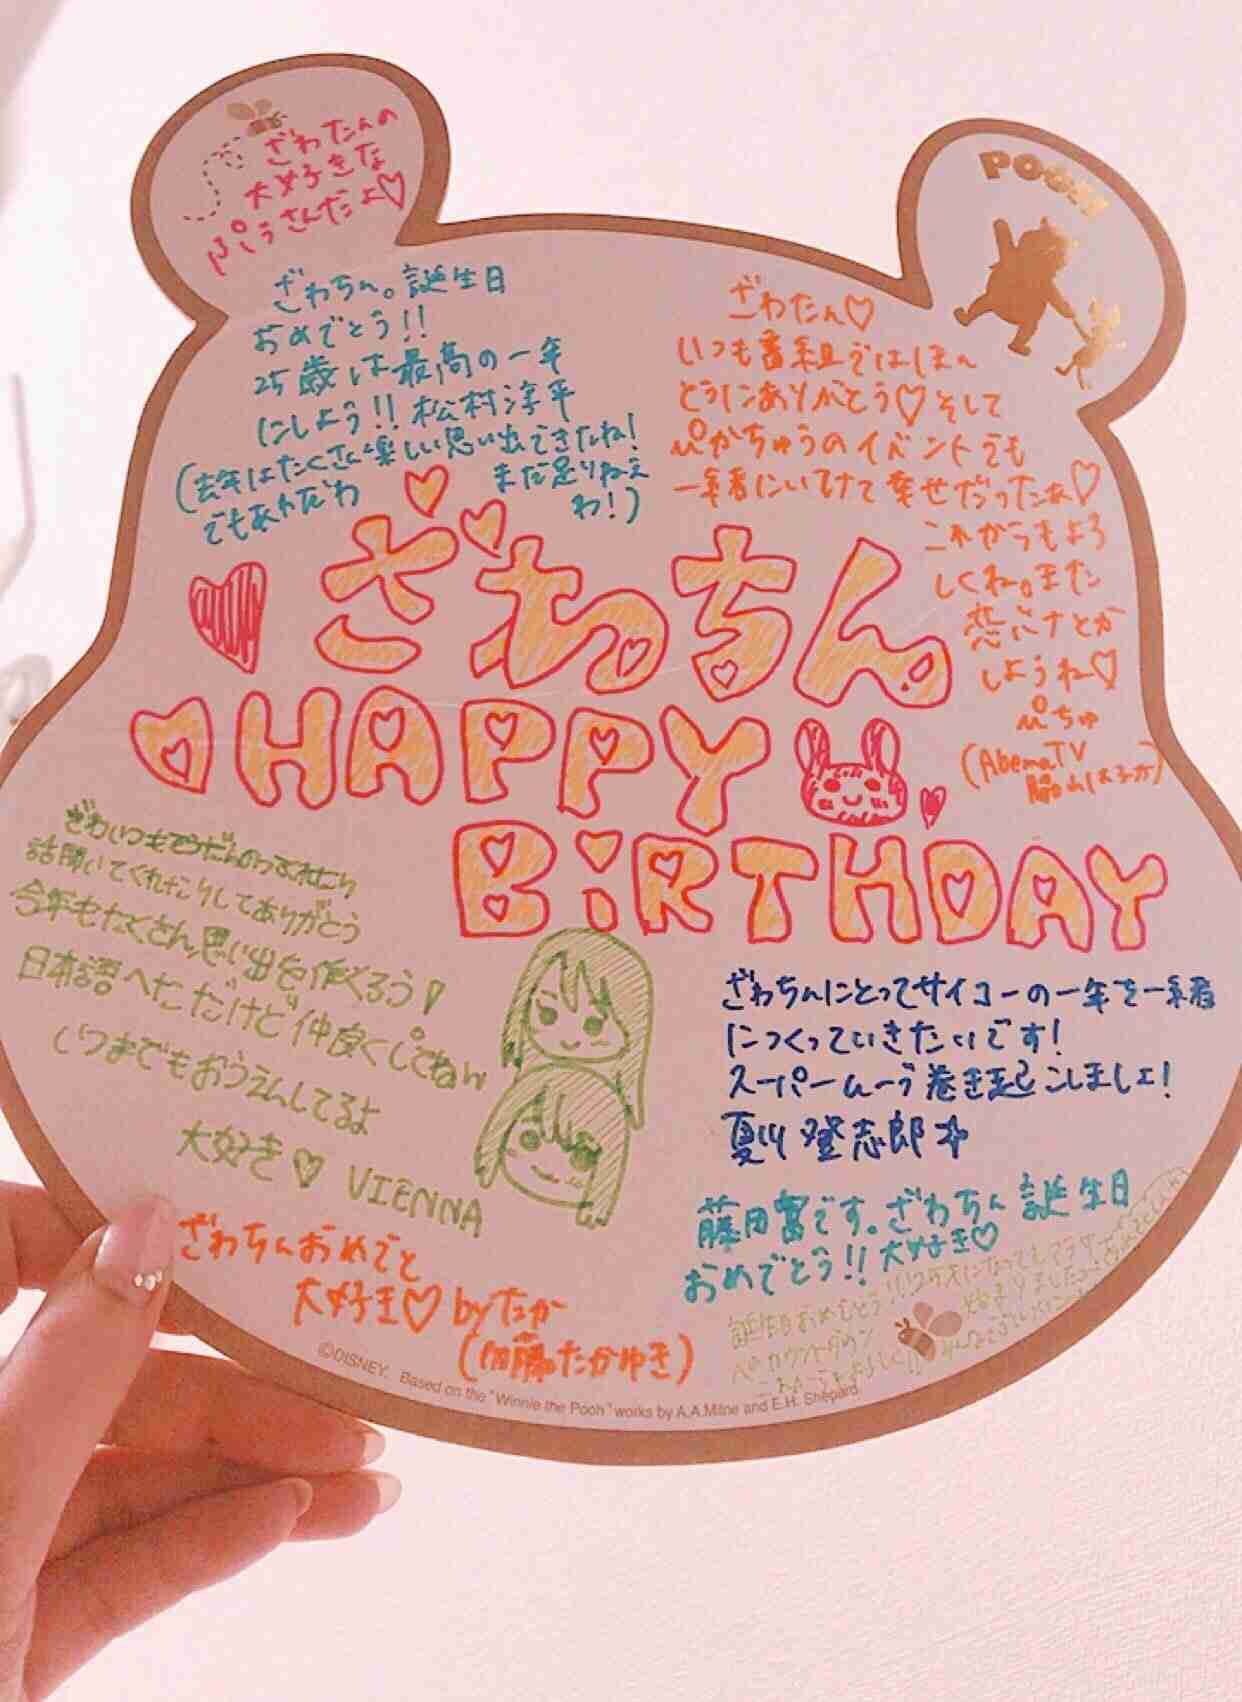 ざわたんの
大好きな
ぷぅさんだよ♡
POOH
ざわちん。誕生日
おめでとう!!
25歳は最高の一年
にしよう!! 松村淳平
(去年はたくさん楽しい思い出できたね!
でもあれだわ まだ足りねぇ
わ!)
ざわたん♡
いつも番組ではほん
とうにありがとう♡そして
ぴかちゅうのイベントでも
一緒にいけて幸せだったぁ♡
これからもよろ
しくね。また
恋バナとか
しようね♡
ぴちゅ
(AbemaTV
ざわちん。
HAPPY
BiRTHDAY
ざわいつもそうだんのってくれたり
話聞いてくれたりしてありがとう
今年もたくさん思い出を作くろう!
日本語へただけど仲良くしてねん
いつまでもおうえんしてるよ
大好き♡ VIENNA
ざわちんにとってサイコーの一年を一緒
につくっていきたいです!
スーパームーブ巻き起こしましょ!
夏川登志郎
藤田富です。ざわちん誕生日
おめでとう!! 大好き♡
ざわちんおめでと
大好き♡ byたか
(伊藤たかゆき)
誕生日おめでとう!!
©DISNEY. Based on the "Winnie the Pooh" works by A.A.Milne and E.H. Shepard.